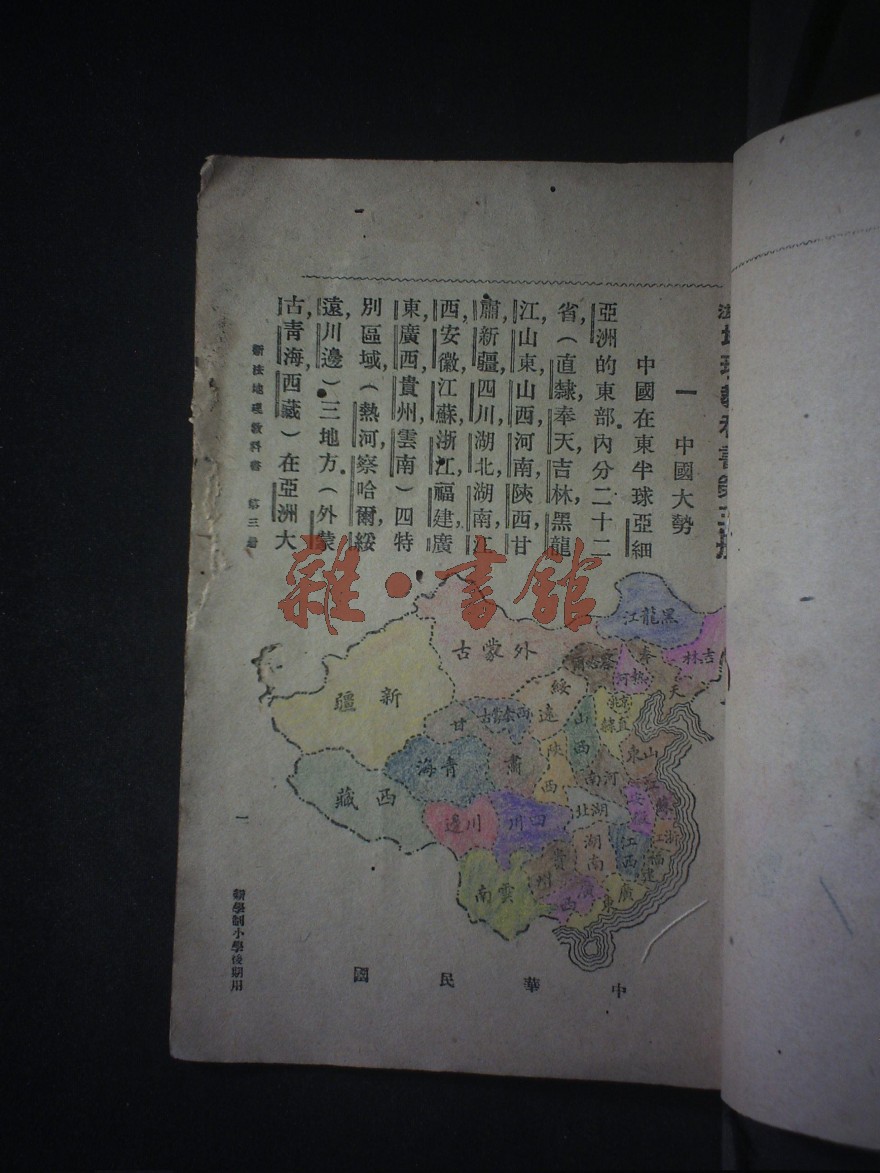 一 中國大勢
中國在東半球亞細
亞洲的東部.內分二十二
省,(直隸,奉天,吉林,黑龍
江,山東,山西,河南,陝西,甘
肅,新疆,四川,湖北,湖南,江
西,安徽,江蘇,浙江,福建,廣
東,廣西,貴州,雲南)四特
別區域,(熱河,察哈爾,綏
遠,川邊)三地方.(外蒙
古,青海,西藏)在亞洲大
新法地理教科書 第三冊
一
新學制小學後期用
雜·書館
黑龍江
吉林
奉天
外蒙古
察哈爾
熱河
新疆
綏遠
京兆
直隸
山西
山東
甘肅
西套蒙古
青海
陝西
河南
江蘇
安徽
西藏
川邊
四川
湖北
浙江
湖南
江西
福建
貴州
雲南
廣西
廣東
中華民國